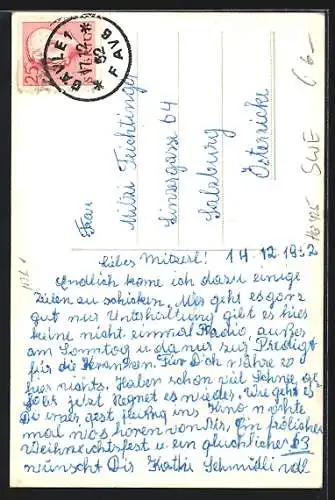 25
GÄVLE 1
17.12
52
* F AVG *
Frau
Mitzi Feichtinger
Linzergasse 64
Salzburg
Österreich
SWE
6–
Liebes Mitzerl! 14.12.1952
Endlich kome ich dazu einige
Zeilen zu schicken, Mir geht es ganz
gut nur Unterhaltung gibt es hier
keine nicht einmal Radio außer
am Sonntag u da nur zur Predigt
für die Kranken. Für Dich wäre
hier nichts. Haben schon viel Schnee,
jetzt Regnet es wieder. Wie geht es
Dir fleißig ins Kino möchte
mal was hören von Dir. Ein frölicher
Weihnachtsfest u. ein glücklicher 53
wünscht Dir Kathi Schmidli